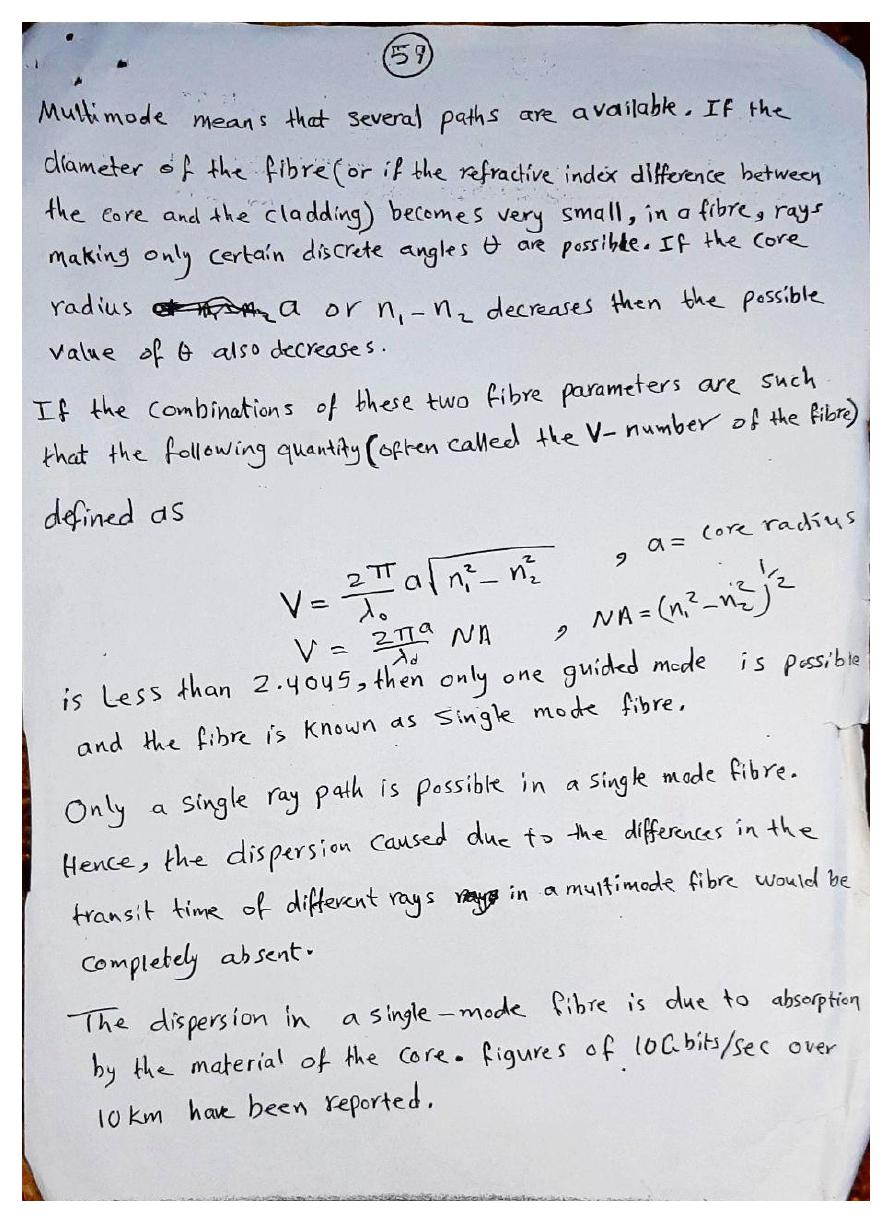 59
Multimode means that several paths are available. If the
diameter of the fibre (or if the refractive index difference between
the core and the cladding) becomes very small, in a fibre, rays
making only certain discrete angles θ are possible. If the core
radius a or n₁ - n₂ decreases then the possible
value of θ also decreases.
If the combinations of these two fibre parameters are such
that the following quantity (often called the V-number of the fibre)
defined as
V = 2π/λ₀ a√(n₁² - n₂²) , a = core radius
V = 2πa/λ₀ NA , NA = (n₁² - n₂²)^1/2
is less than 2.4045, then only one guided mode is possible
and the fibre is known as single mode fibre.
Only a single ray path is possible in a single mode fibre.
Hence, the dispersion caused due to the differences in the
transit time of different rays in a multimode fibre would be
completely absent.
The dispersion in a single-mode fibre is due to absorption
by the material of the core. figures of 10Gbits/sec over
10 km have been reported.